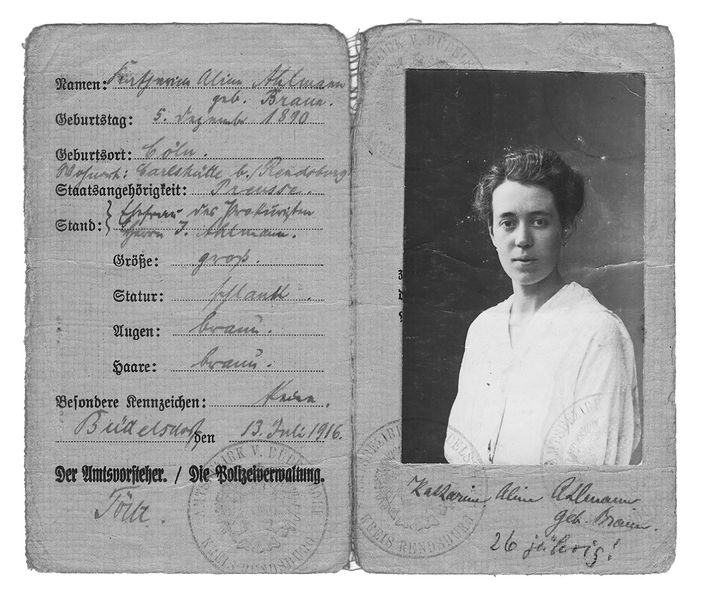 Namen: Katharina Aline Ahlmann
geb. Braun.
Geburtstag: 5. Dezember 1890
Geburtsort: Cöln.
Wohnort: Carlshütte b./Rendsburg
Staatsangehörigkeit: Preusse.
Stand: Ehefrau des Prokuristen
Herrn J. Ahlmann.
Größe: groß.
Statur: schlank.
Augen: braun.
Haare: braun.
Besondere Kennzeichen: Keine.
Büdelsdorf den 13. Juli 1916.
Der Amtsvorsteher. / Die Polizeiverwaltung.
AMTSBEZIRK V. BÜDELSDORF
KREIS RENDSBURG
Katharina Aline Ahlmann
geb. Braun.
26 jährig!